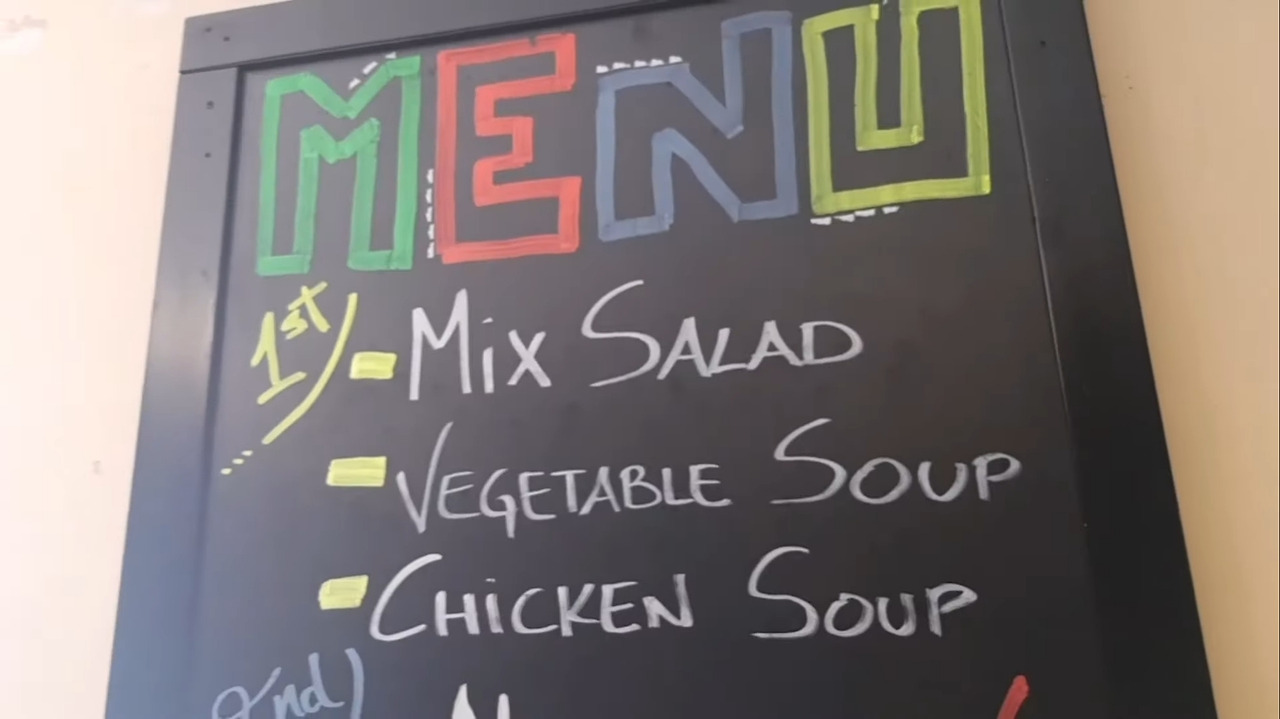 MENU
1st) - Mix SALAD
- VEGETABLE SOUP
- CHiCKEN SOUP
2nd)